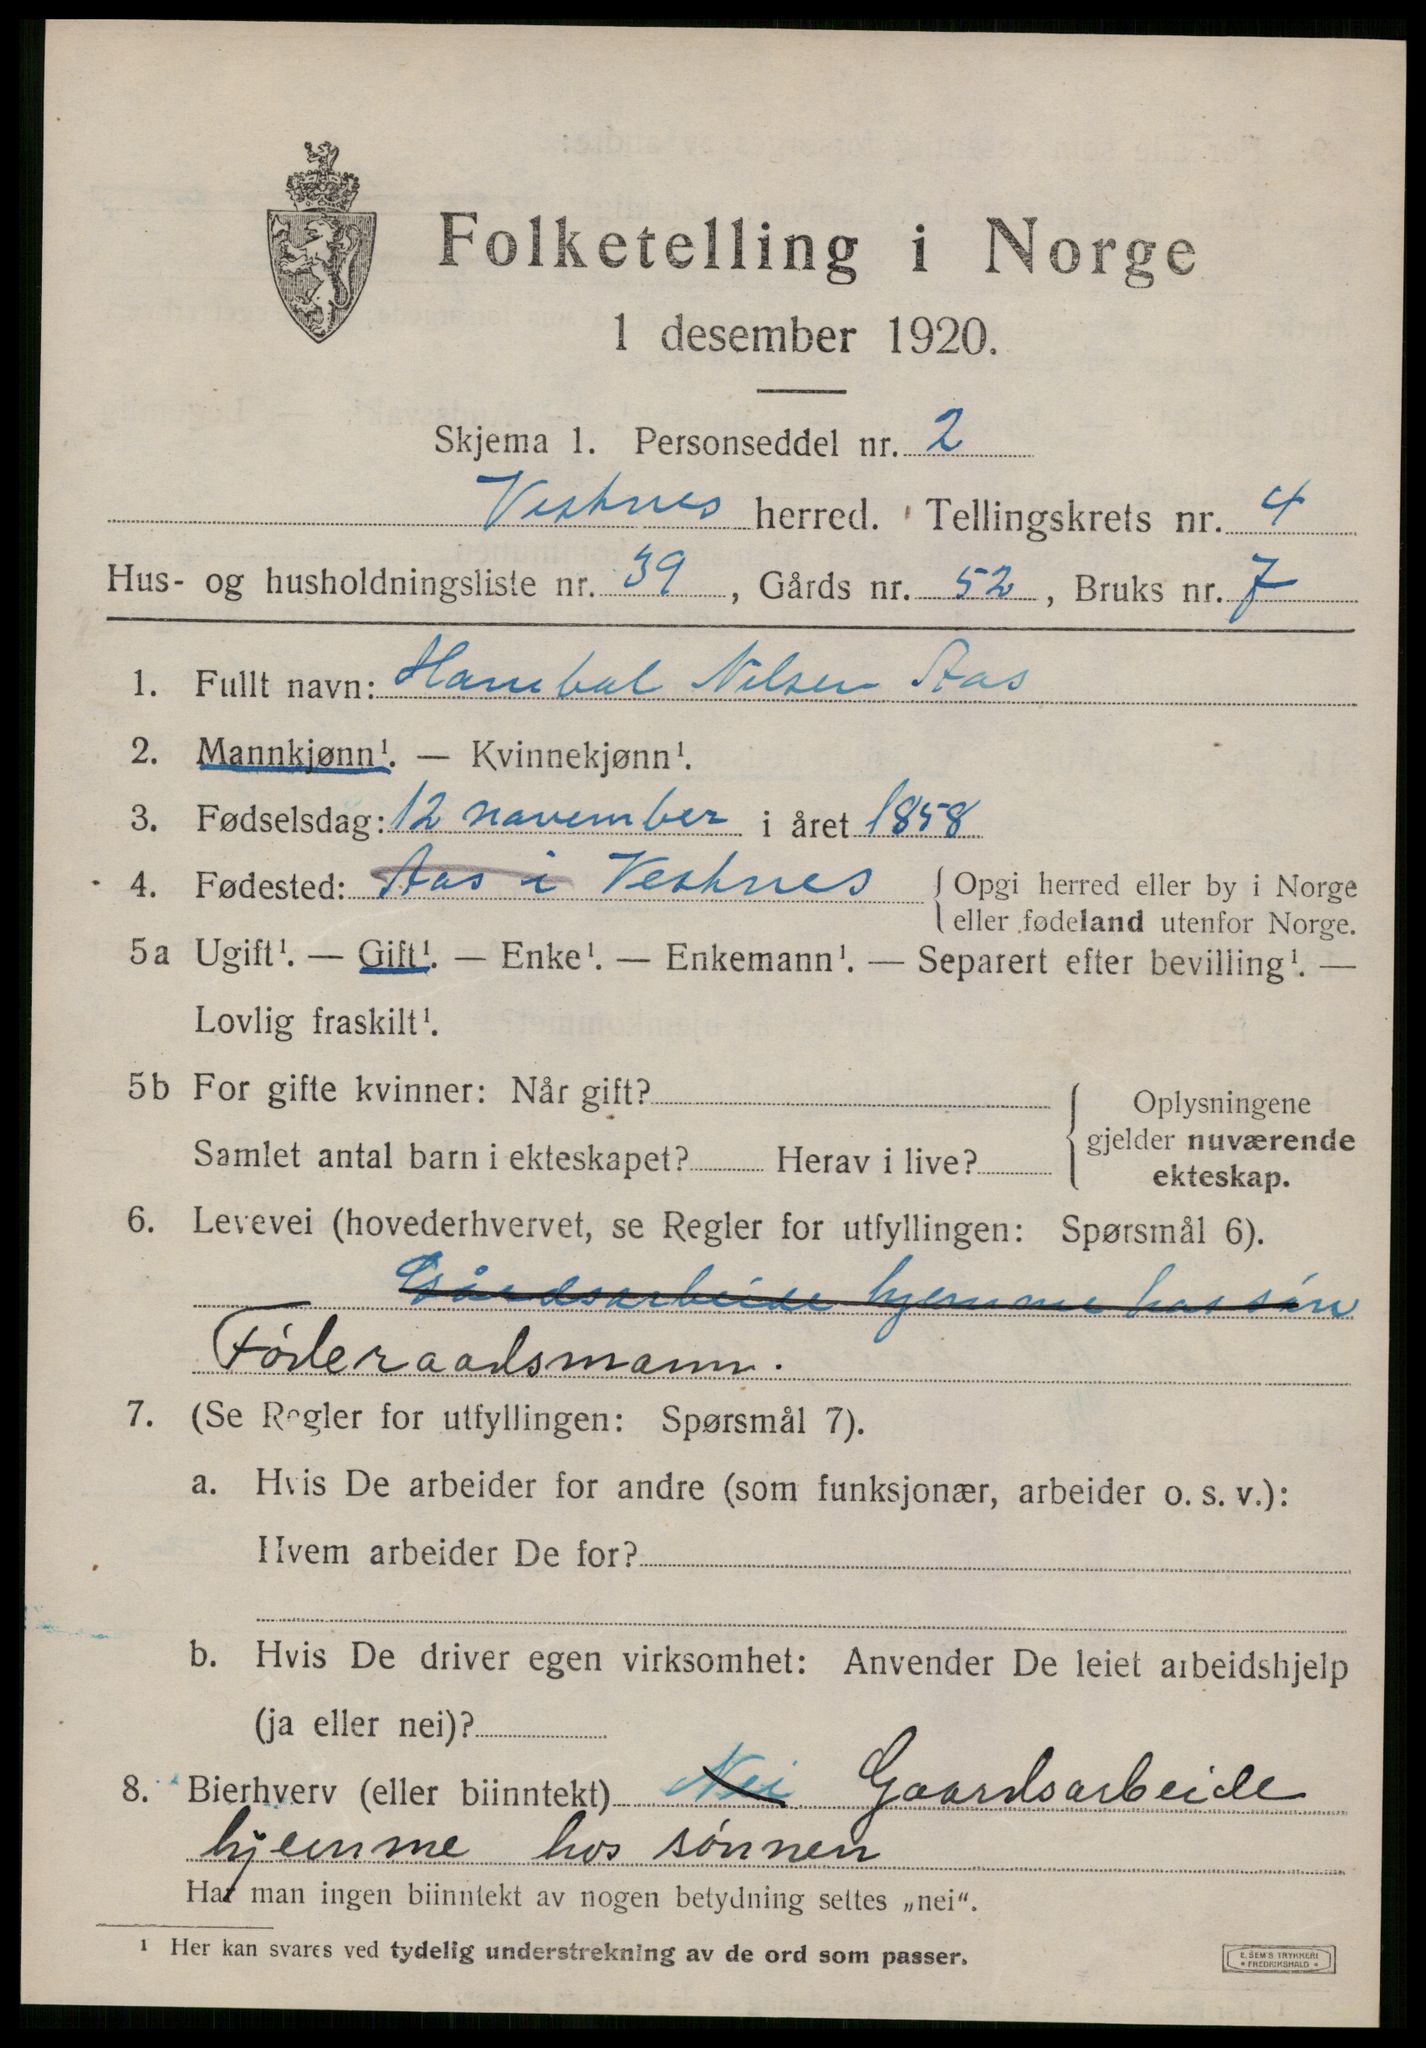 Folketelling i Norge
1 desember 1920.
Skjema 1. Personseddel nr. 2
Vestnes herred. Tellingskrets nr. 4
Hus- og husholdningsliste nr. 39, Gårds nr. 52, Bruks nr. 7
1. Fullt navn: Hanibal Nilsen Aas
2. Mannkjønn¹. — Kvinnekjønn¹.
3. Fødselsdag: 12 november i året 1858
4. Fødested: Aas i Vestnes { Opgi herred eller by i Norge
eller fødeland utenfor Norge.
5a Ugift¹. — Gift¹. — Enke¹. — Enkemann¹. — Separert efter bevilling¹. —
Lovlig fraskilt¹.
5b For gifte kvinner: Når gift?
Samlet antal barn i ekteskapet? Herav i live?
Oplysningene
gjelder nuværende
ekteskap.
6. Levevei (hovederhvervet, se Regler for utfyllingen: Spørsmål 6).
Gårdsarbeide hjemme hos søn
Føderaadsmann.
7. (Se Regler for utfyllingen: Spørsmål 7).
a. Hvis De arbeider for andre (som funksjonær, arbeider o. s. v.):
Hvem arbeider De for?
b. Hvis De driver egen virksomhet: Anvender De leiet arbeidshjelp
(ja eller nei)?
8. Bierhverv (eller biinntekt) Nei Gaardsarbeide
hjemme hos sønnen
Har man ingen biinntekt av nogen betydning settes „nei“.
¹ Her kan svares ved tydelig understrekning av de ord som passer.
E. SEM'S TRYKKERI
* FREDRIKSHALD *